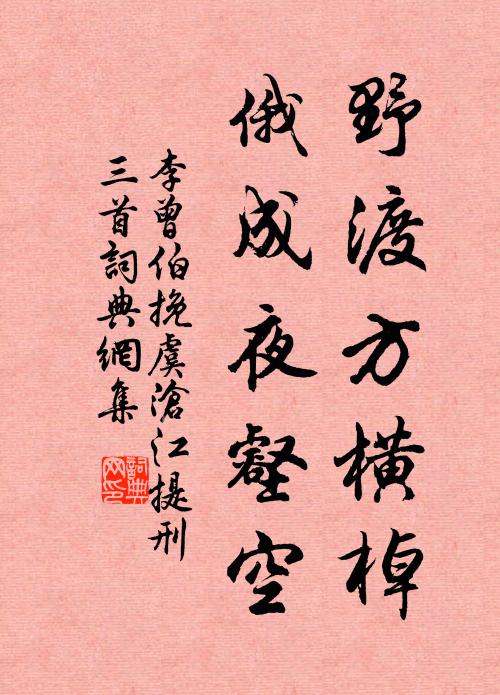 野渡方橫棹
俄成夜壑空
李曾伯挽虞滄江提刑
三首詞典網集
詞典
网印